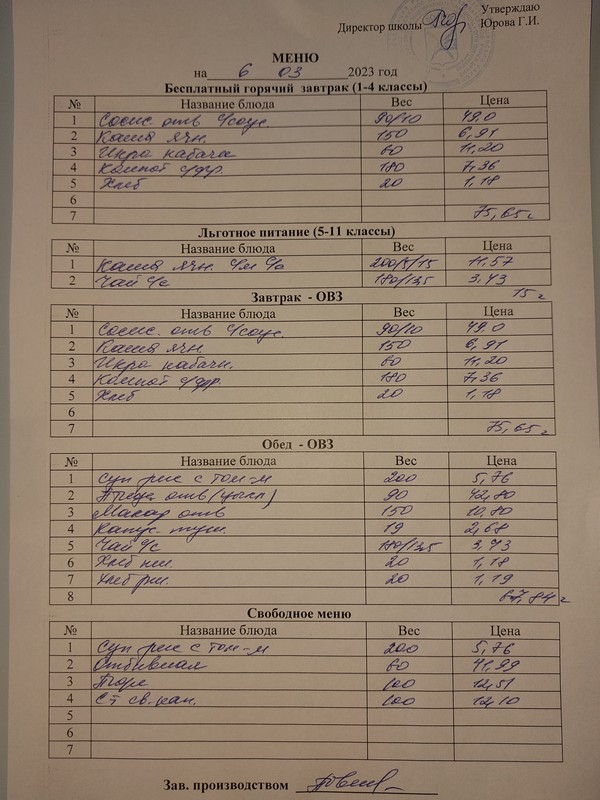 Утверждаю
Директор школы Юрова Г.И.
МЕНЮ
на 6 03 2023 год
Бесплатный горячий завтрак (1-4 классы)
№ Название блюда Вес Цена
1 Сосис. отв с/соус. 90/10 49,0
2 Каша ячн. 150 6,91
3 Икра кабачк 60 11,20
4 Компот с/фр. 180 7,36
5 Хлеб 20 1,18
6
7 75,65 г
Льготное питание (5-11 классы)
№ Название блюда Вес Цена
1 Каша ячн. с/м с/с 200/5/15 11,57
2 Чай с/с 180/13,5 3,43
15 г
Завтрак - ОВЗ
№ Название блюда Вес Цена
1 Сосис. отв с/соус. 90/10 49,0
2 Каша ячн. 150 6,91
3 Икра кабачк. 60 11,20
4 Компот с/фр. 180 7,36
5 Хлеб 20 1,18
6
7 75,65 г
Обед - ОВЗ
№ Название блюда Вес Цена
1 Суп рис с том-м 200 5,76
2 Птица отв (цыпл) 90 42,80
3 Макар отв 150 10,80
4 Капус. туш. 19 2,68
5 Чай с/с 180/13,5 3,43
6 Хлеб пш. 20 1,18
7 Хлеб рж. 20 1,19
8 67,84 г
Свободное меню
№ Название блюда Вес Цена
1 Суп рис с том-м 200 5,76
2 Отбивная 60 41,99
3 Пюре 100 12,51
4 Ст св. кап. 100 12,10
5
6
7
Зав. производством